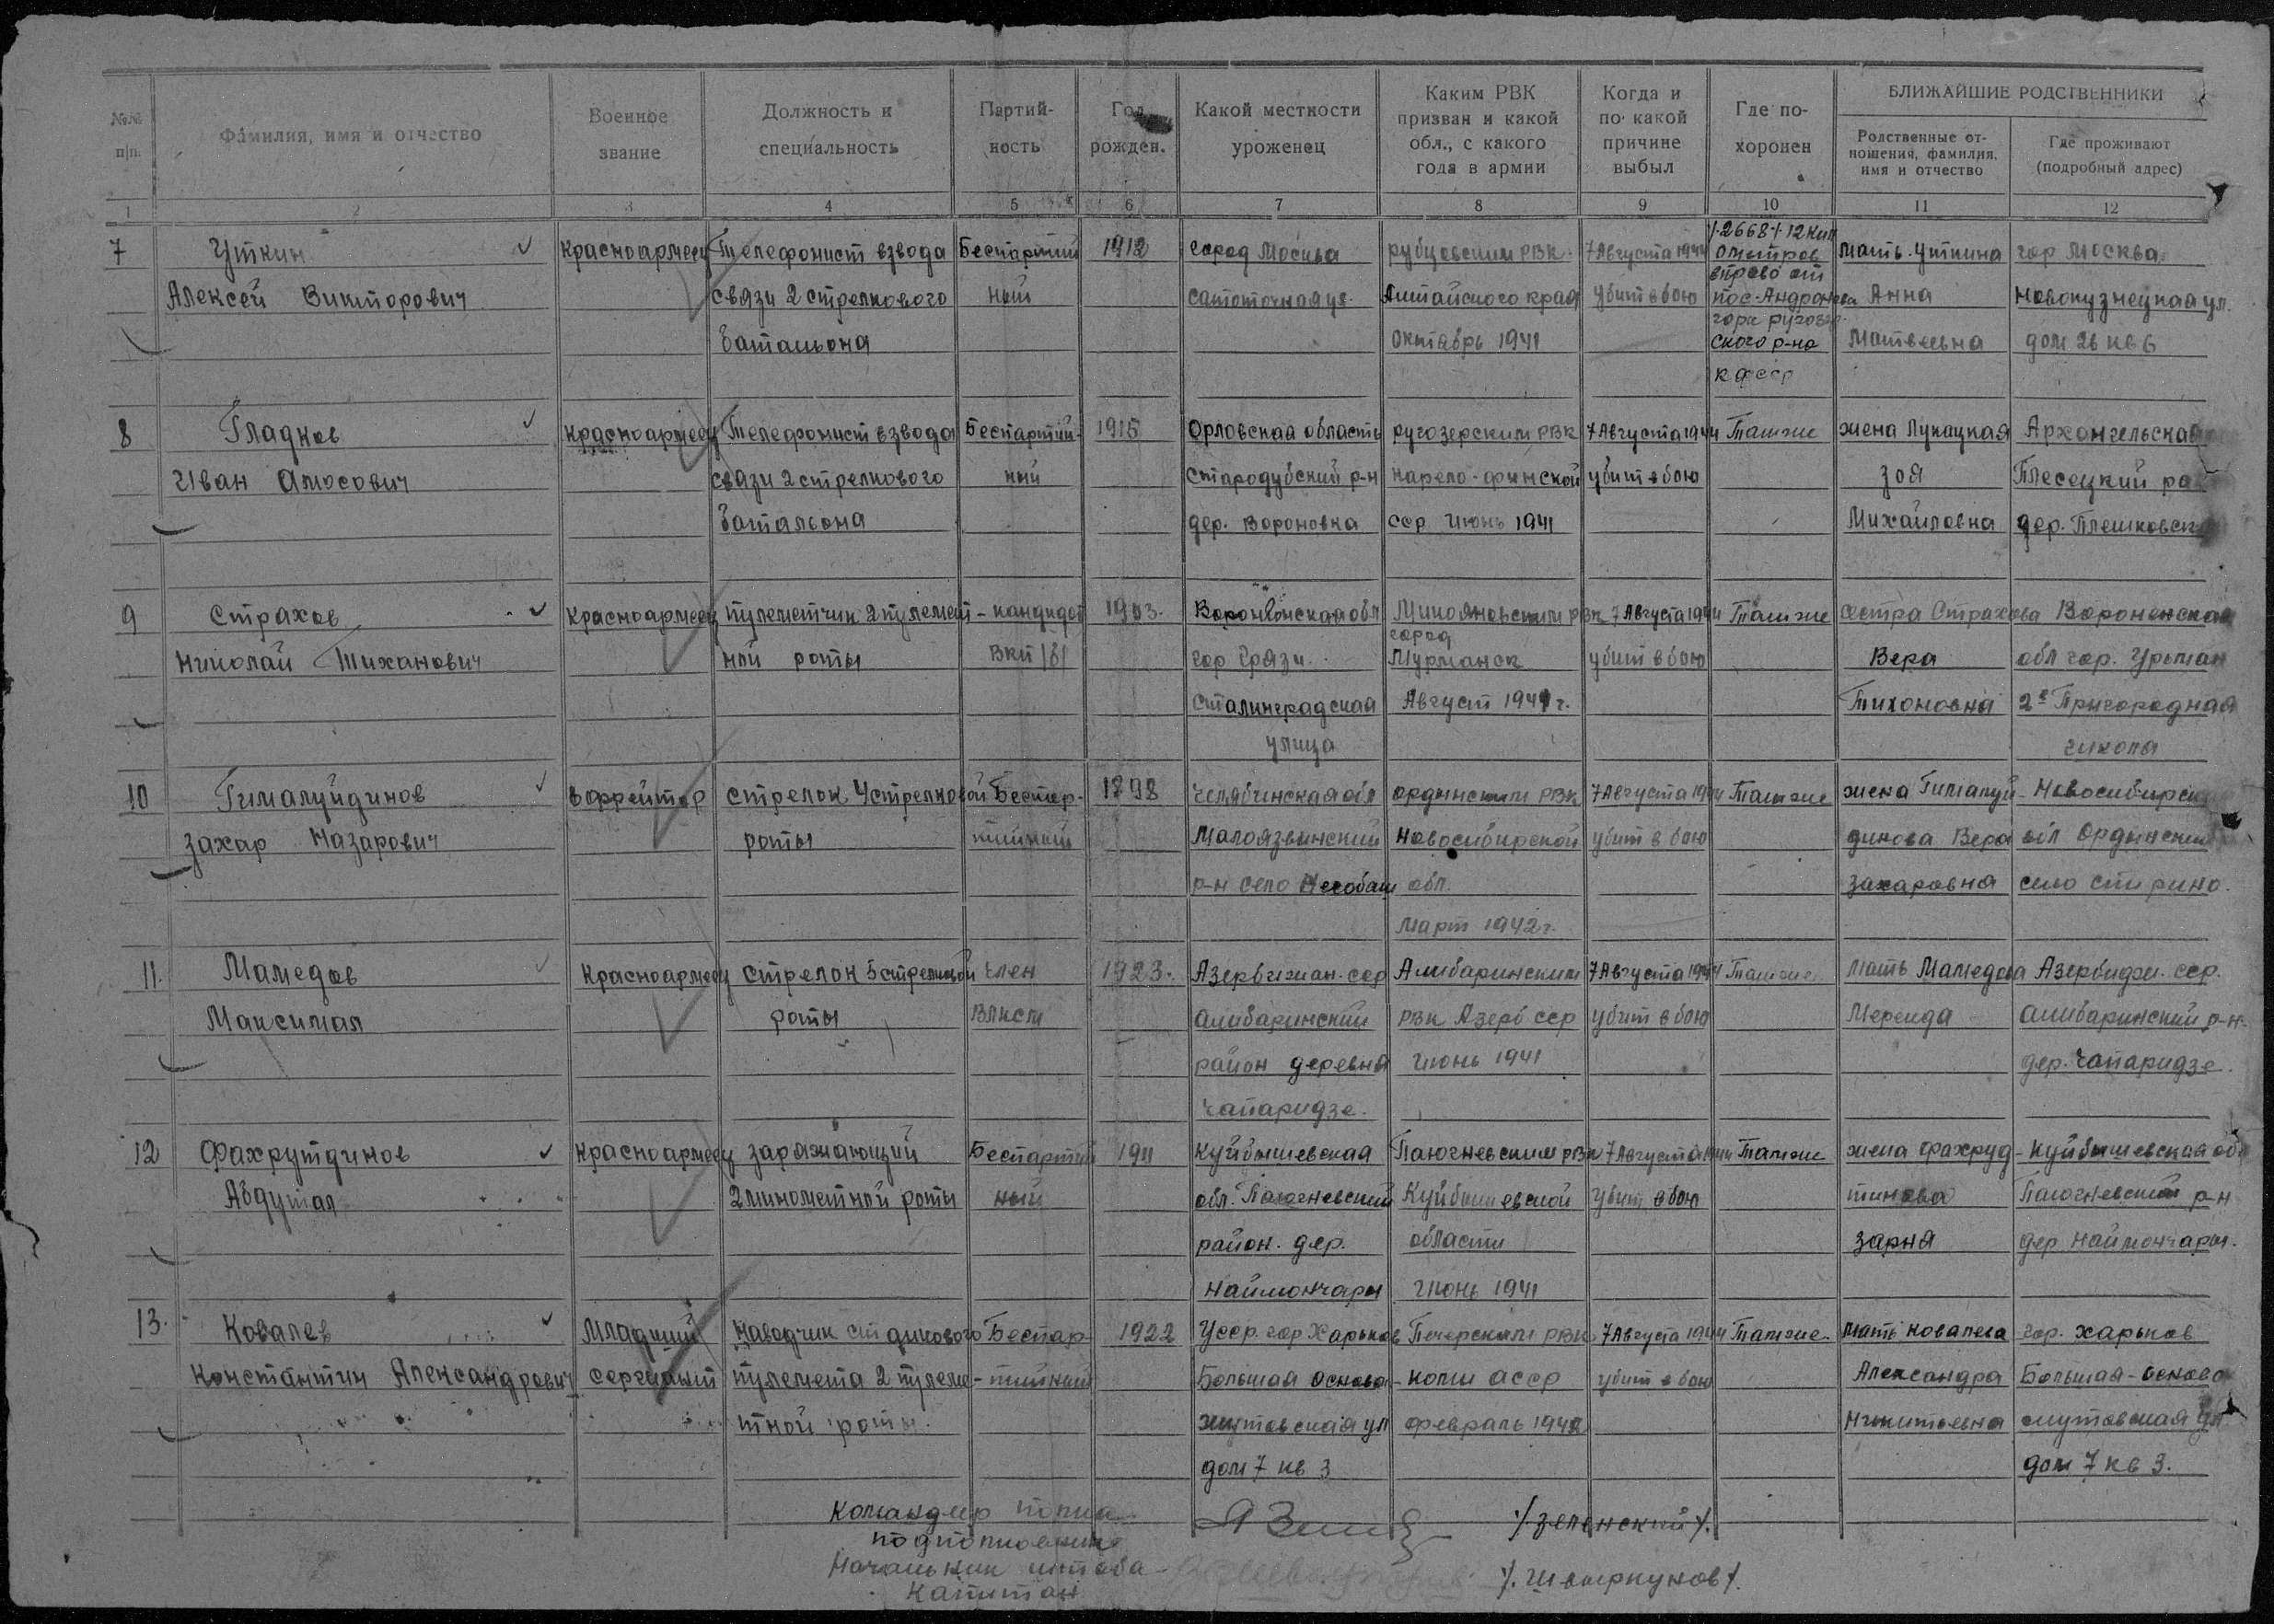 №№ п/п.
Фамилия, имя и отчество
Военное звание
Должность и специальность
Партий-ность
Год рожден.
Какой местности уроженец
Каким РВК призван и какой обл., с какого года в армии
Когда и по какой причине выбыл
Где по-хоронен
БЛИЖАЙШИЕ РОДСТВЕННИКИ
Родственные от-ношения, фамилия, имя и отчество
Где проживают (подробный адрес)
1 2 3 4 5 6 7 8 9 10 11 12
7 Уткин Красноармеец Телефонист взвода Беспартий 1912 город Москва рубцовским РВК 7 Августа 1944 1.2668.1 12 км ометров мать Уткина гор Москва
Алексей Викторович связи 2 стрелкового ный самоточная ул. Алтайского края убит в бою вправо от пос. Андронова Анна Новокузнецкая ул.
батальона октябрь 1941 гора ругозер ского р-на Матвеевна дом 26 кв 6
к ф сср
8 Гладков Красноармеец Телефонист взвода Беспартий- 1915 Орловская область ругозерским РВК 7 Августа 1944 Там же жена Лукацкая Архангельская
Иван Амосович связи 2 стрелкового ный Стародубский р-н карело-финской убит в бою зоя Плесецкий ра
батальона дер. Вороновка сср Июнь 1941 Михайловна дер. Плешковск
9 Страхов Красноармеец пулеметчик 2 пулемет- кандидат 1903. Воронежская обл Микояновским РВК 7 Августа 1944 Там же сестра Страхова Воронежская
Николай Тиханович ной роты ВКП /б/ гор Грязи. город Мурманск убит в бою Вера обл гор. Усмань
Сталинградская Август 1941 г. Тихоновна 2я Пригородная
улица школа
10 Гималуйдинов ефрейтор стрелок 4 стрелковой Беспар- 1898 Челябинская обл ордынским РВК 7 Августа 1944 Там же жена Гималуй- Новосибирск
захар Назарович роты тийный Малоязвинский Новосибирской убит в бою динова Вера обл Ордынский
р-н село обл. захаровна село спирино.
Март 1942 г.
11. Мамедов Красноармеец стрелок 5 стрелковой член 1923. Азербижан. сср Алибаринским 7 Августа 1944 Там же мать Мамедова Азербидж. сср.
Максимал роты ВЛКСМ алибаринский РВК Азерб сср убит в бою Мереида алибаринский р-н.
район деревня Июнь 1941 дер. чапаридзе.
чапаридзе.
12 Фахрутдинов Красноармеец заряжающий Беспартий 1911 Куйбышевская Палюгневским РВК 7 Августа 1944 Там же жена Фахруд- Куйбышевская обл
Абдумал 2 минометной роты ный обл. Палюгневский Куйбышевской убит в бою тинова р-н
район. дер. области зарня дер Наймончары.
Наймончары Июнь 1941
13. Ковалев Младший Наводчик станкового Беспар- 1922 Усср. гор Харьков Печерским РВК 7 Августа 1944 Там же. Мать Ковалева гор. Харьков
Константин Александрович сержант пулемета 2 пулеме- тийный Большая основа- коми асср убит в бою Александра Большая-основа
тной роты. ул февраль 1942 Никитовна ул.
дом 7 кв 3 дом 7 кв 3.
Командир полка
подполковник /зеленский/.
Начальник штаба
капитан /.Шамркунов/.